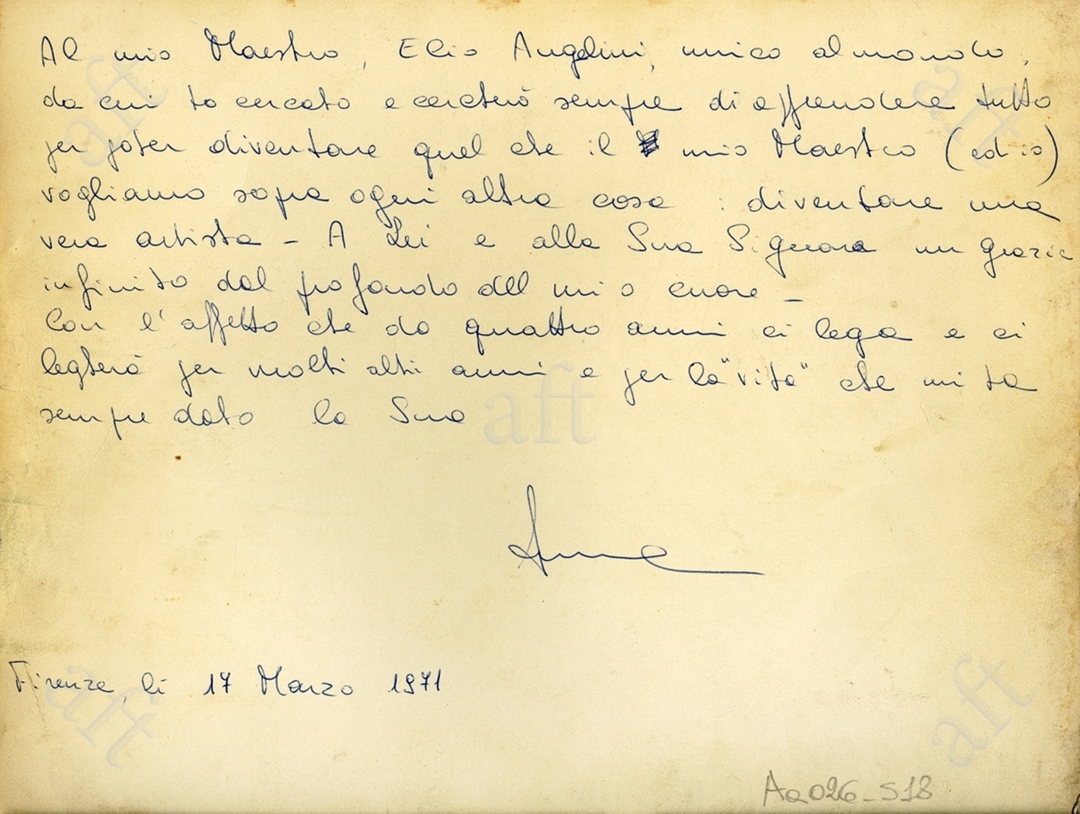 Al mio Maestro, Elio Angelini, unico al mondo,
da cui ho cercato e cercherò sempre di apprendere tutto
per poter diventare quel che il mio Maestro (ed io)
vogliamo sopra ogni altra cosa : diventare una
vera artista - A Lei e alla Sua Signora un grazie
infinito dal profondo del mio cuore -
Con l'affetto che da quattro anni ci lega e ci
legherà per molti altri anni e per la "vita" che mi ha
sempre dato la Sua
aft
Firenze, li 17 Marzo 1971
aft
aft
aft
aft
Aa026-S18